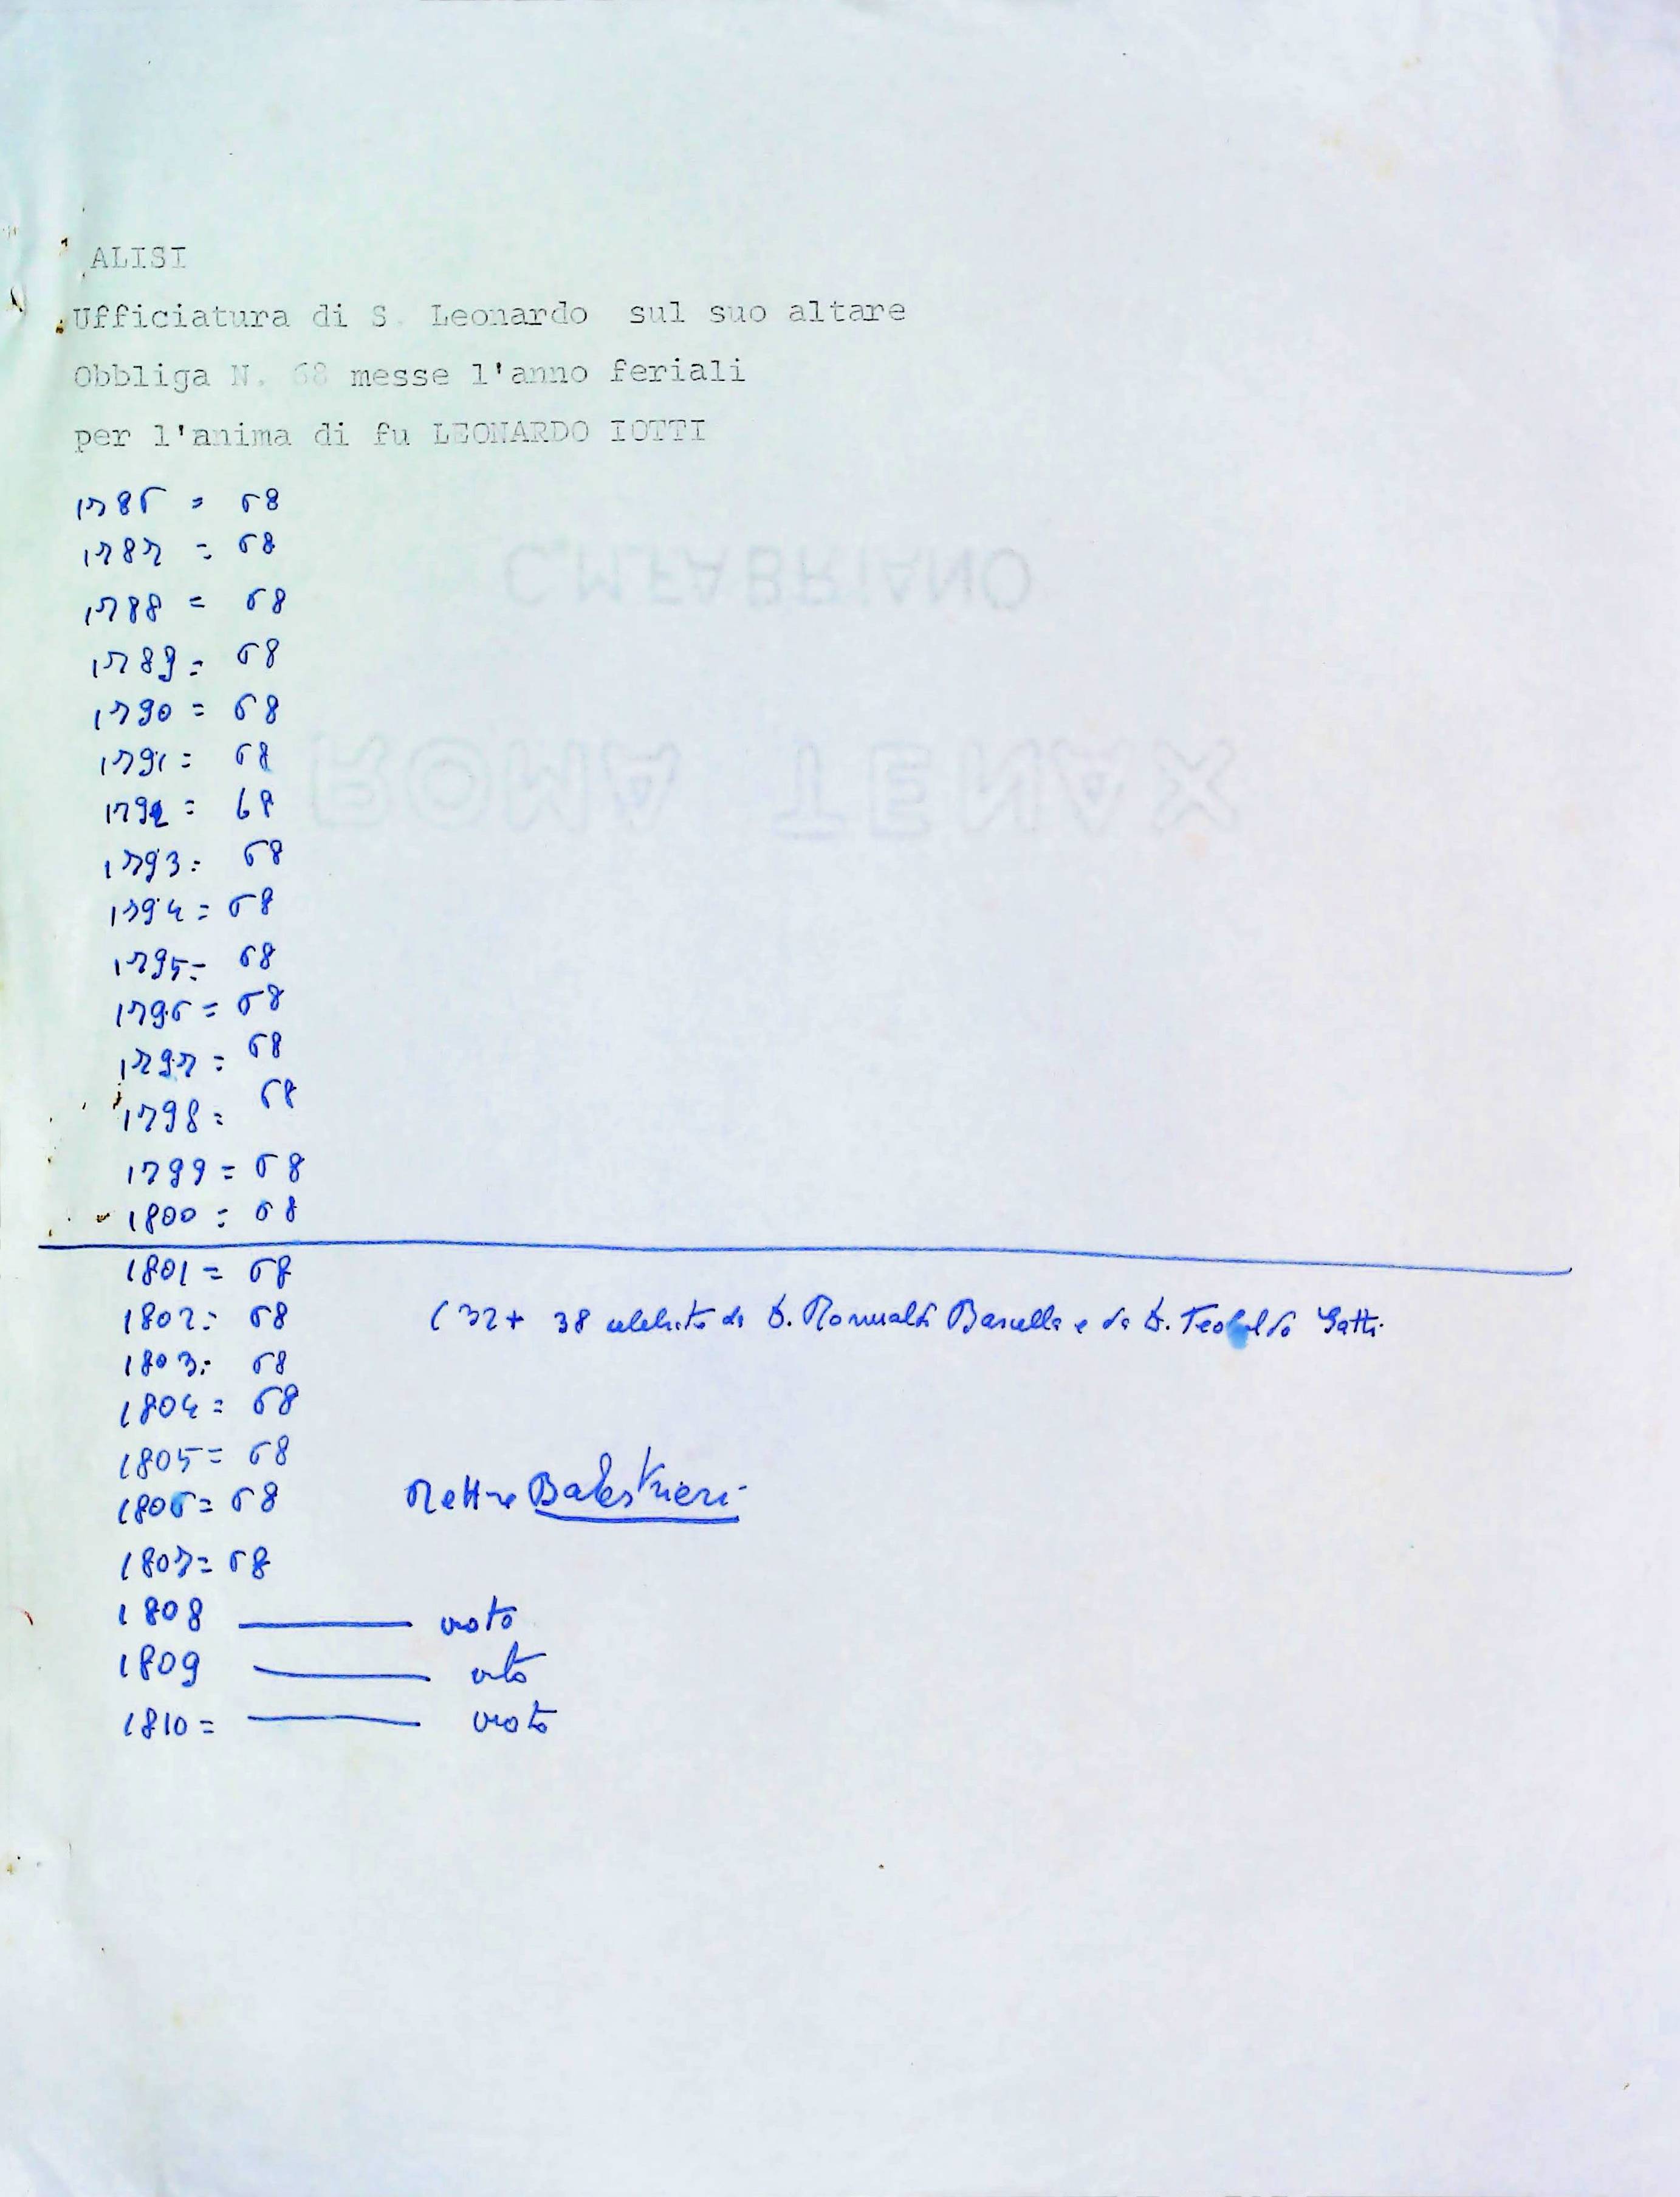 ALISI
Ufficiatura di S. Leonardo sul suo altare
Obbliga N. 68 messe l'anno feriali
per l'anima di fu LEONARDO IOTTI
1786 = 68
1787 = 68
C.M.FABRIANO
1788 = 68
1789 = 68
1790 = 68
1791 = 68
ROMA TENAX
1792 = 68
1793 = 68
1794 = 68
1795 = 68
1796 = 68
1797 = 68
1798 = 68
1799 = 68
1800 = 68
1801 = 68
1802 = 68 (32+ 38 celebrate da D. Romualdo Barcella e da D. Teobaldo Gatti
1803 = 68
1804 = 68
1805 = 68
1806 = 68 Rettore Balestrieri
1807 = 68
1808 — vuoto
1809 — vuoto
1810 = — vuoto